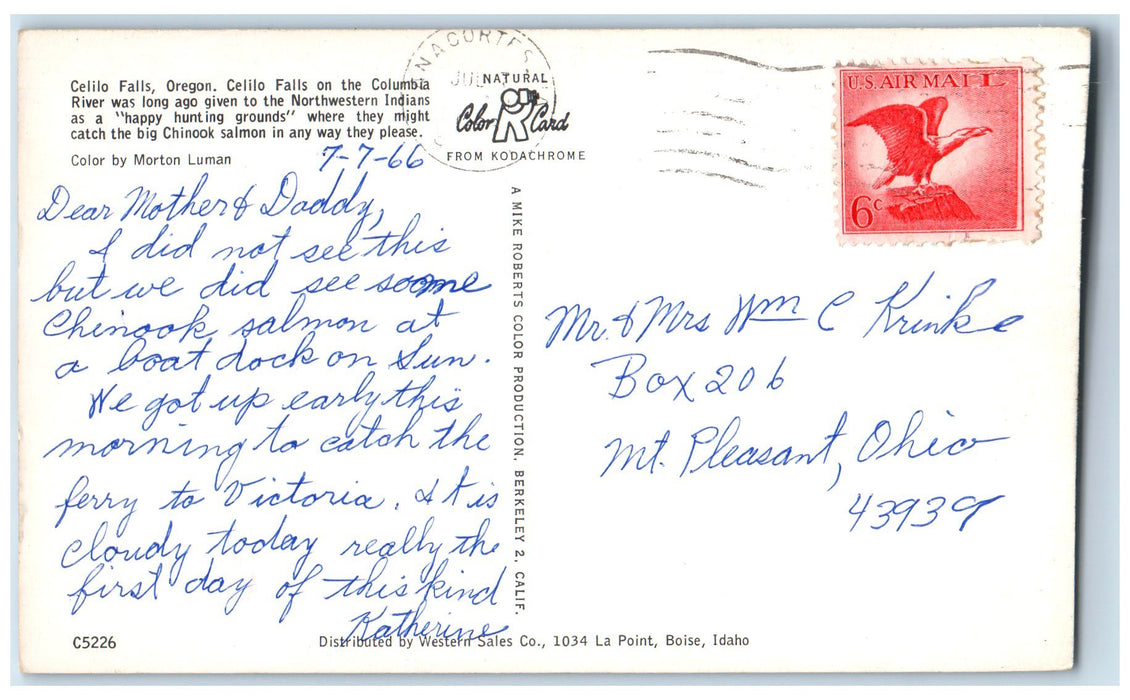 Celilo Falls, Oregon. Celilo Falls on the Columbia
River was long ago given to the Northwestern Indians
as a "happy hunting grounds" where they might
catch the big Chinook salmon in any way they please.
Color by Morton Luman
7-7-66
Dear Mother & Daddy,
I did not see this
but we did see some
Chinook salmon at
a boat dock on Sun.
We got up early this
morning to catch the
ferry to Victoria. It is
cloudy today really the
first day of this kind
Katherine
C5226
Distributed by Western Sales Co., 1034 La Point, Boise, Idaho
A MIKE ROBERTS COLOR PRODUCTION, BERKELEY 2, CALIF.
ANACORTES
JUL
NATURAL
Color Card
FROM KODACHROME
U.S. AIR MAIL
6c
Mr. & Mrs Wm C Krinke
Box 206
Mt. Pleasant, Ohio
43939